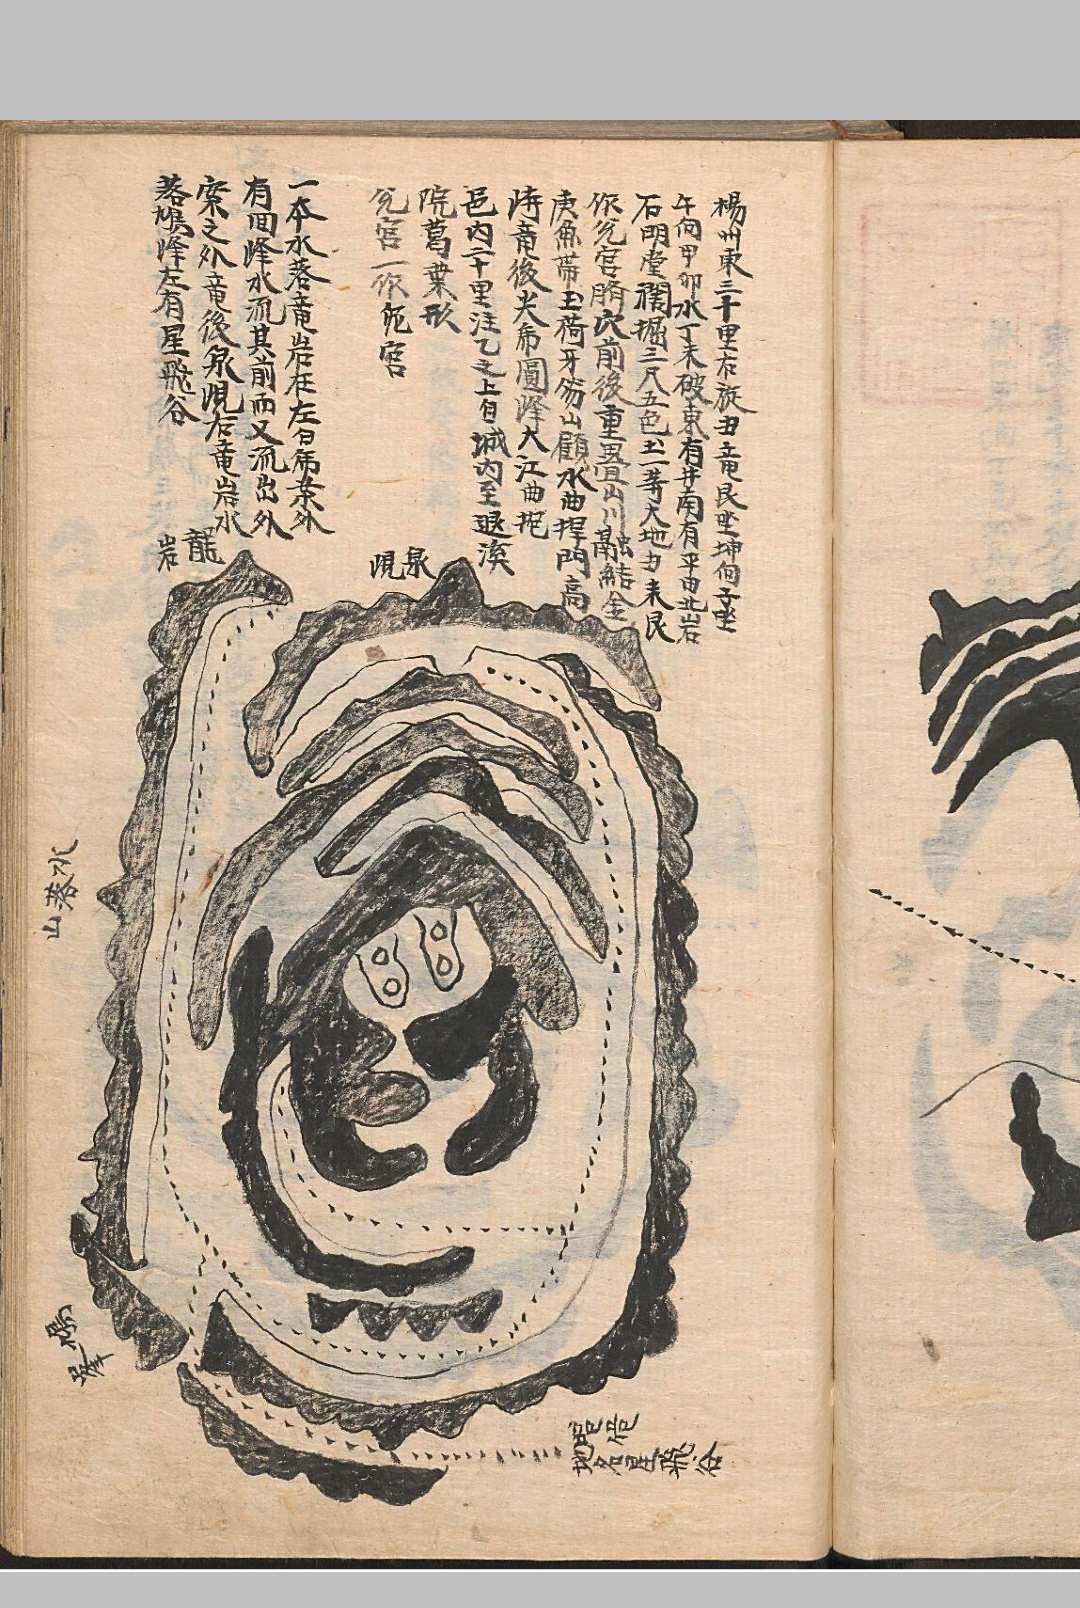 楊州東三十里右旋丑竜艮坐坤向子坐
午向甲卯水丁未破東有井南有平由北岩
石明堂濶掘三尺五色土一等大地丑来艮
作兊宮臍穴前後重疊山川融結金
庚魚帶玉荷牙笏山顧水曲捍門高
峙竜後尖帋圓峰大江曲抱
邑内二十里注乙之上自城内至退溪
院葛葉形
兊宮一作艮宮
一本水落竜岩在左白帋案外
有回峰水流其前而又流出外
案之外竜後泉峴右竜岩水
落鳩峰左有星飛谷
龍岩
泉峴
水落山
峯
地名星飛谷